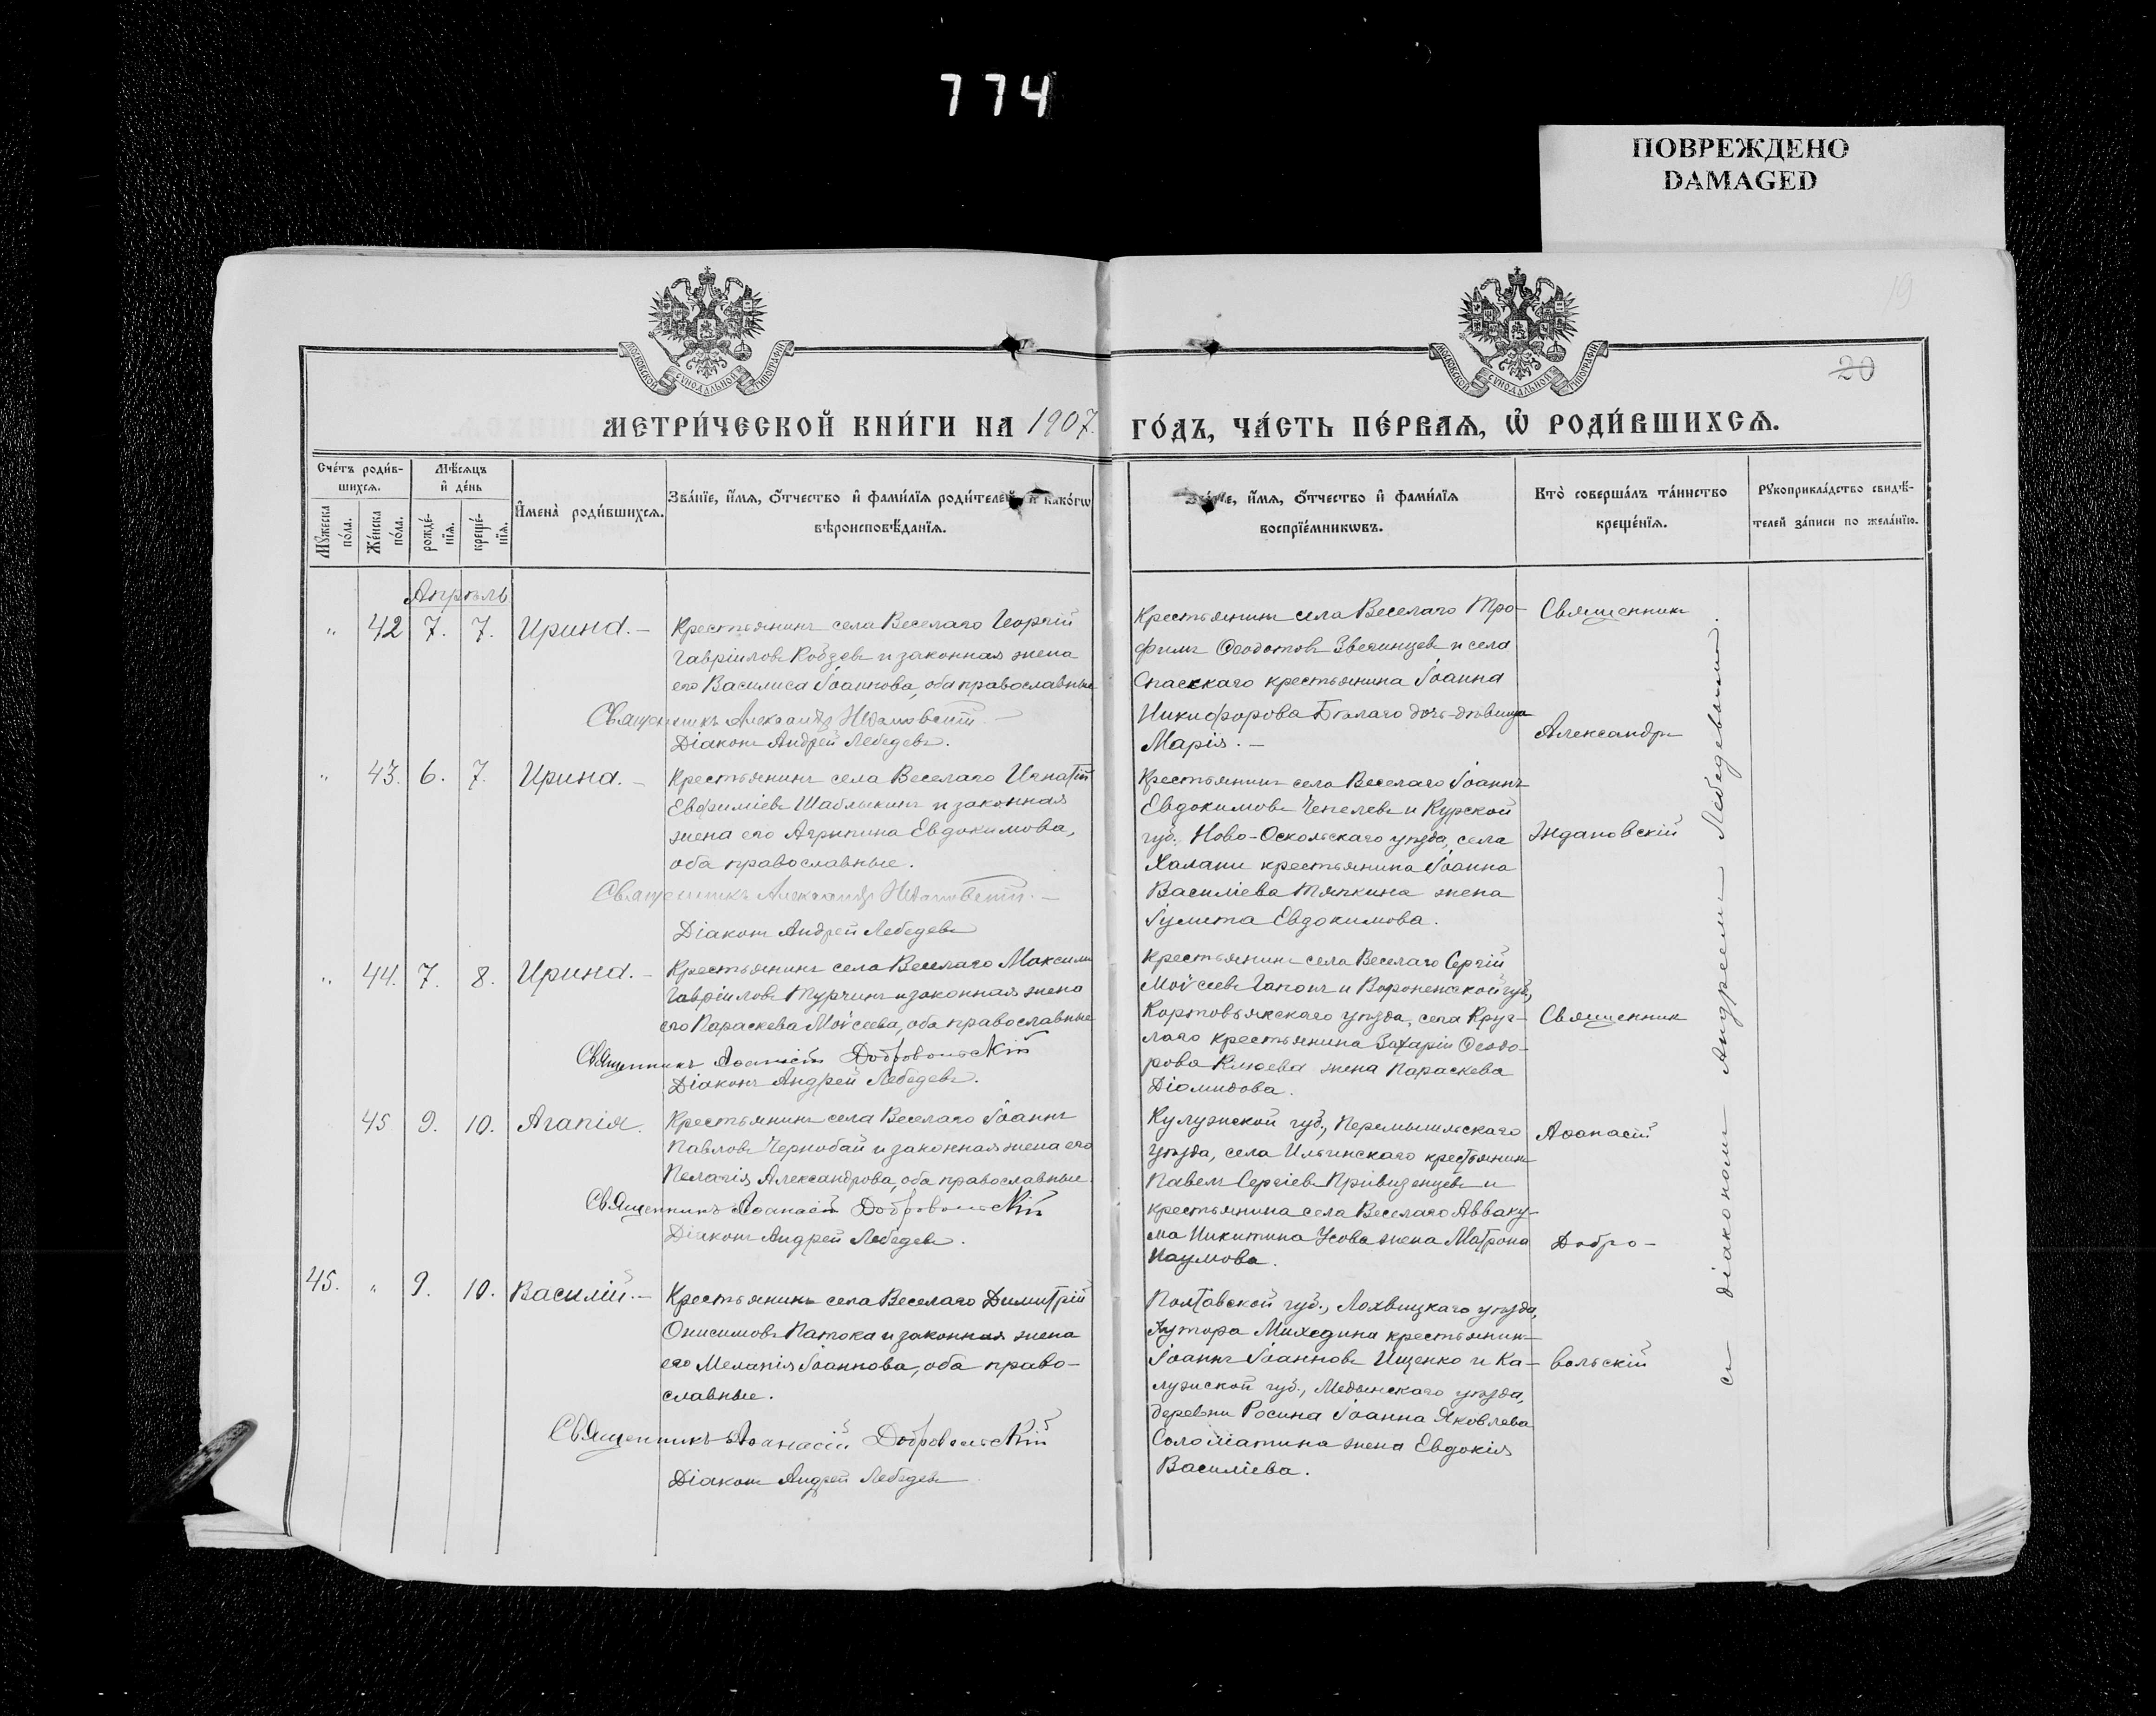 774
ПОВРЕЖДЕНО
DAMAGED
19
20
МОСКОВСКОЙ СѴНОДАЛЬНОЙ ТИПОГРАФІИ
МОСКОВСКОЙ СѴНОДАЛЬНОЙ ТИПОГРАФІИ
МЕТРИ́ЧЕСКОЙ КНИ́ГИ НА 1907.
ГО́ДЪ, ЧА́СТЬ ПЕ́РВАѦ, Ѡ҆ РОДИ́ВШИХСѦ.
Сче́тъ роди́в-
шихсѧ.
Мѣ́сѧцъ
и҆ де́нь
Мꙋ́жеска по́ла.
Же́нска по́ла.
рожде́-
нїѧ.
креще́-
нїѧ.
И҆мена̀ роди́вшихсѧ.
Зва́нїе, и҆́мѧ, ѻ҆́тчество и҆ фами́лїѧ роди́телей, и҆ како́гѡ
вѣроисповѣ́данїѧ.
и҆́мѧ, ѻ҆́тчество и҆ фами́лїѧ
воспрїе́мникѡвъ.
Кто̀ соверша́лъ та́инство
креще́нїѧ.
Рꙋкоприкла́дство свидѣ́-
телей за́писи по жела́нїю.
Апрѣль
" 42 7. 7. Ирина. –
Крестьянинъ села Веселаго Георгій
Гавріиловъ Кобзевъ и законная жена
его Василиса Іоаннова, оба православные
Священникъ Александръ Ждановскій. –
Діаконъ Андрей Лебедевъ.
Крестьянинъ села Веселаго Тро-
фимъ Ѳеодотовъ Звегинцевъ и села
Спасскаго крестьянина Іоанна
Никифорова Бѣлаго дочь-дѣвица
Марія. –
Священникъ
Александръ
" 43. 6. 7. Ирина. –
Крестьянинъ села Веселаго Игнатій
Евфиміевъ Шаблыкинъ и законная
жена его Агрипина Евдокимова,
оба православные.
Священникъ Александръ Ждановскій. –
Діаконъ Андрей Лебедевъ
Крестьянинъ села Веселаго Іоаннъ
Евдокимовъ Чепелевъ и Курской
губ., Ново-Оскольскаго уѣзда, села
Халани крестьянина Іоанна
Василіева Тяпкина жена
Іулита Евдокимова.
Ждановскій
" 44. 7. 8. Ирина. –
Крестьянинъ села Веселаго Максимъ
Гавріиловъ Турчинъ и законная жена
его Параскева Моѵсеева, оба православные
Священникъ Аѳанасій Добровольскій
Діаконъ Андрей Лебедевъ.
Крестьянинъ села Веселаго Сергій
Моѵсеевъ Гапонъ и Воронежской губ.,
Коротоякскаго уѣзда, села Круг-
лаго крестьянина Захаріи Ѳеодо-
рова Клюева жена Параскева
Діомидова.
Священникъ
45 9. 10. Агапія.
Крестьянинъ села Веселаго Іоаннъ
Павловъ Чернобай и законная жена его
Пелагія Александрова, оба православные.
Священникъ Аѳанасій Добровольскій
Діаконъ Андрей Лебедевъ.
Кулужской губ., Перемышльскаго
уѣзда, села Ильинскаго крестьянинъ
Павелъ Сергіевъ Привизенцевъ и
крестьянина села Веселаго Авваку-
ма Никитина Усова жена Матрона
Наумова.
Аѳанасій
Добро-
45. " 9. 10. Василій. –
Крестьянинъ села Веселаго Димитрій
Онисимовъ Патока и законная жена
его Меланія Іоаннова, оба право-
славные.
Священникъ Аѳанасій Добровольскій
Діаконъ Андрей Лебедевъ
Полтавской губ., Лохвицкаго уѣзда,
хутора Михедина крестьянинъ
Іоаннъ Іоанновъ Ищенко и Ка-
лужской губ., Медынскаго уѣзда,
деревни Росина Іоанна Яковлева
Соломатина жена Евдокія
Василіева.
вольскій
съ діакономъ Андреемъ Лебедевымъ.